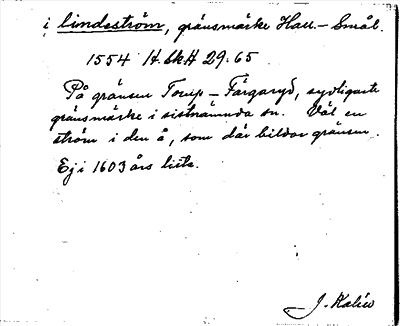 i lindeström, gränsmärke Hall.– Smål.
1554 H.Sk.H 29:65
På gränsen Torup – Färgaryd, sydligaste
gränsmärke i sistnämnda sn. Väl en
ström i den å, som där bildar gränsen.
Ej i 1603 års lista.
J. Kalén